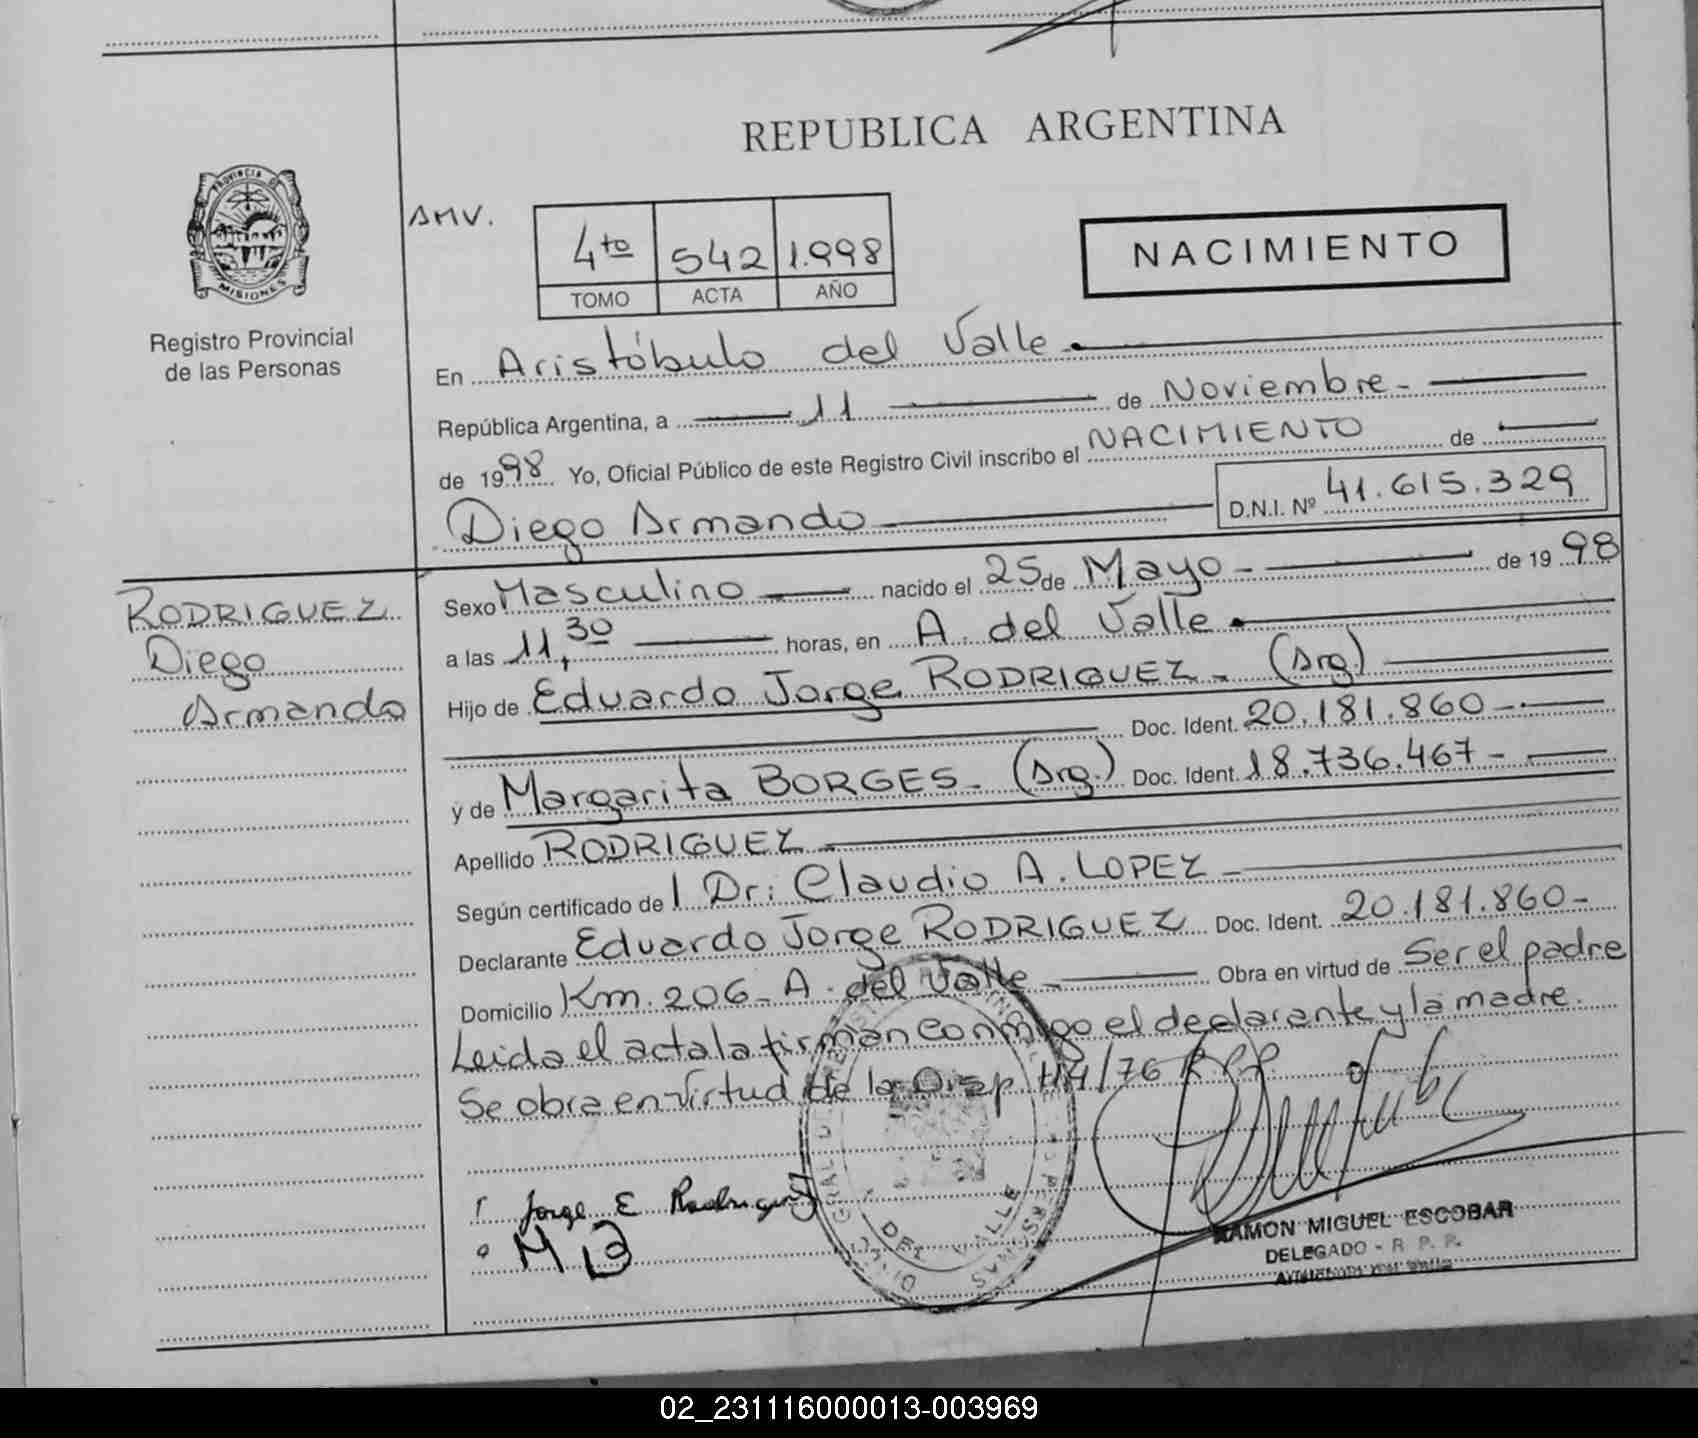 REPUBLICA ARGENTINA
PROVINCIA DE
MISIONES
Registro Provincial
de las Personas
AMV.
4to 542 1.998
TOMO ACTA AÑO
NACIMIENTO
En Aristóbulo del Valle
República Argentina, a 11 de Noviembre
de 1998 Yo, Oficial Público de este Registro Civil inscribo el NACIMIENTO de
Diego Armando D.N.I. Nº 41.615.329
RODRIGUEZ
Diego
Armando
Sexo Masculino nacido el 25 de Mayo de 1998
a las 11,30 horas, en A. del Valle
Hijo de Eduardo Jorge RODRIGUEZ (Arg.)
Doc. Ident. 20.181.860
y de Margarita BORGES (Arg.) Doc. Ident. 18.736.467
Apellido RODRIGUEZ
Según certificado de Dr: Claudio A. LOPEZ
Declarante Eduardo Jorge RODRIGUEZ Doc. Ident. 20.181.860
Domicilio Km. 206 A. del Valle Obra en virtud de Ser el padre
Leida el acta la firman conmigo el declarante y la madre.
Se obra en virtud de la Disp. 114/76 R.P.P.
Jorge E Rodriguez
M B
DEL VALLE
PERSONAS
RAMON MIGUEL ESCOBAR
DELEGADO - R. P. P.
Aristóbulo del Valle
02_231116000013-003969